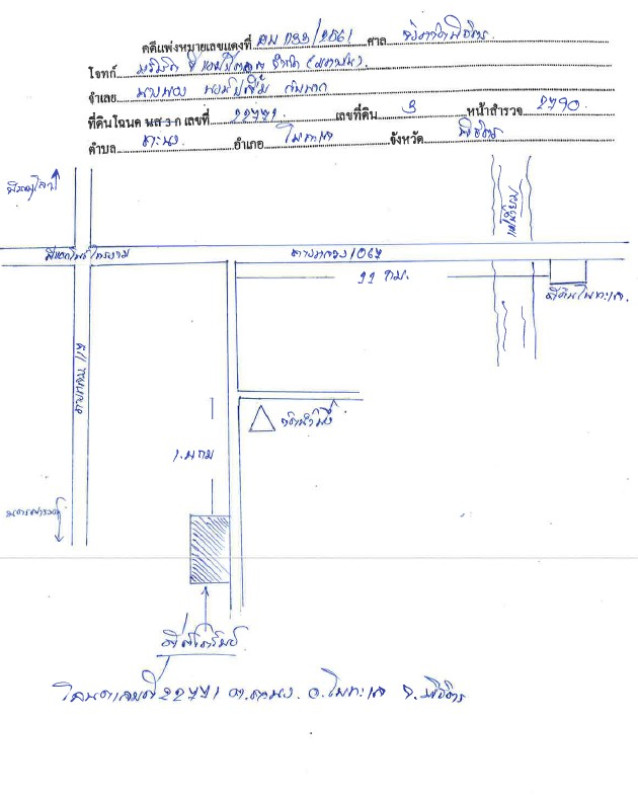 คดีแพ่งหมายเลขแดงที่ ผบ 1733/2561 ศาล จังหวัดพิจิตร
โจทก์ บริษัท จำกัด (มหาชน)
จำเลย นาย
ที่ดินโฉนด นส-3-ก เลขที่ 22771 เลขที่ดิน 3 หน้าสำรวจ 2790
ตำบล ท่านั่ง อำเภอ โพทะเล จังหวัด พิจิตร
พิษณุโลก
แม่น้ำยม
สี่แยกโพธิ์ไทรงาม ทางหลวง 1067
11 กม.
ที่ดินโพทะเล
ทางหลวง 117
วัด
1. กม
นครสวรรค์
ที่ตั้งทรัพย์
โฉนดเลขที่ 22771 ต.ท่านั่ง อ.โพทะเล จ.พิจิตร